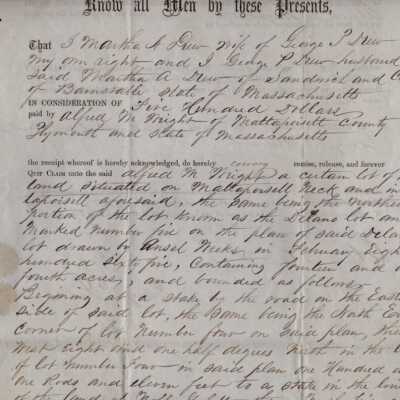 Know all Men by these Presents,
That I Martha A Drew wife of George P Drew
my own right and I George P Drew husband
Said Martha A Drew of Sandwich and C
of Barnstable State of Massachusetts
IN CONSIDERATION OF Five Hundred Dollars
paid by Alfred M Wright of Mattapoisett County
Plymouth and State of Massachusetts
the receipt whereof is hereby acknowledged, do hereby convey remise, release, and forever
QUIT CLAIM unto the said Alfred M Wright a certain lot of
land situated on Mattapoisett Neck and in
tapoisett aforesaid, the same being the northe
portion of the lot known as the Delano lot an
Marked Number five on the plan of said Dela
lot drawn by Ansel Weeks in Febuary Eigh
hundred sixty five, Containing fourteen and
fourth acres, and bounded as follows,
Begining at a stake by the road on the East
side of said lot, the same being the North Ea
corner of lot Number four on said plan, the
West eight and one half degrees North in the l
of lot Number Four in said plan One Hundred a
one Rods and eleven feet to a stake in the lin
of the land of